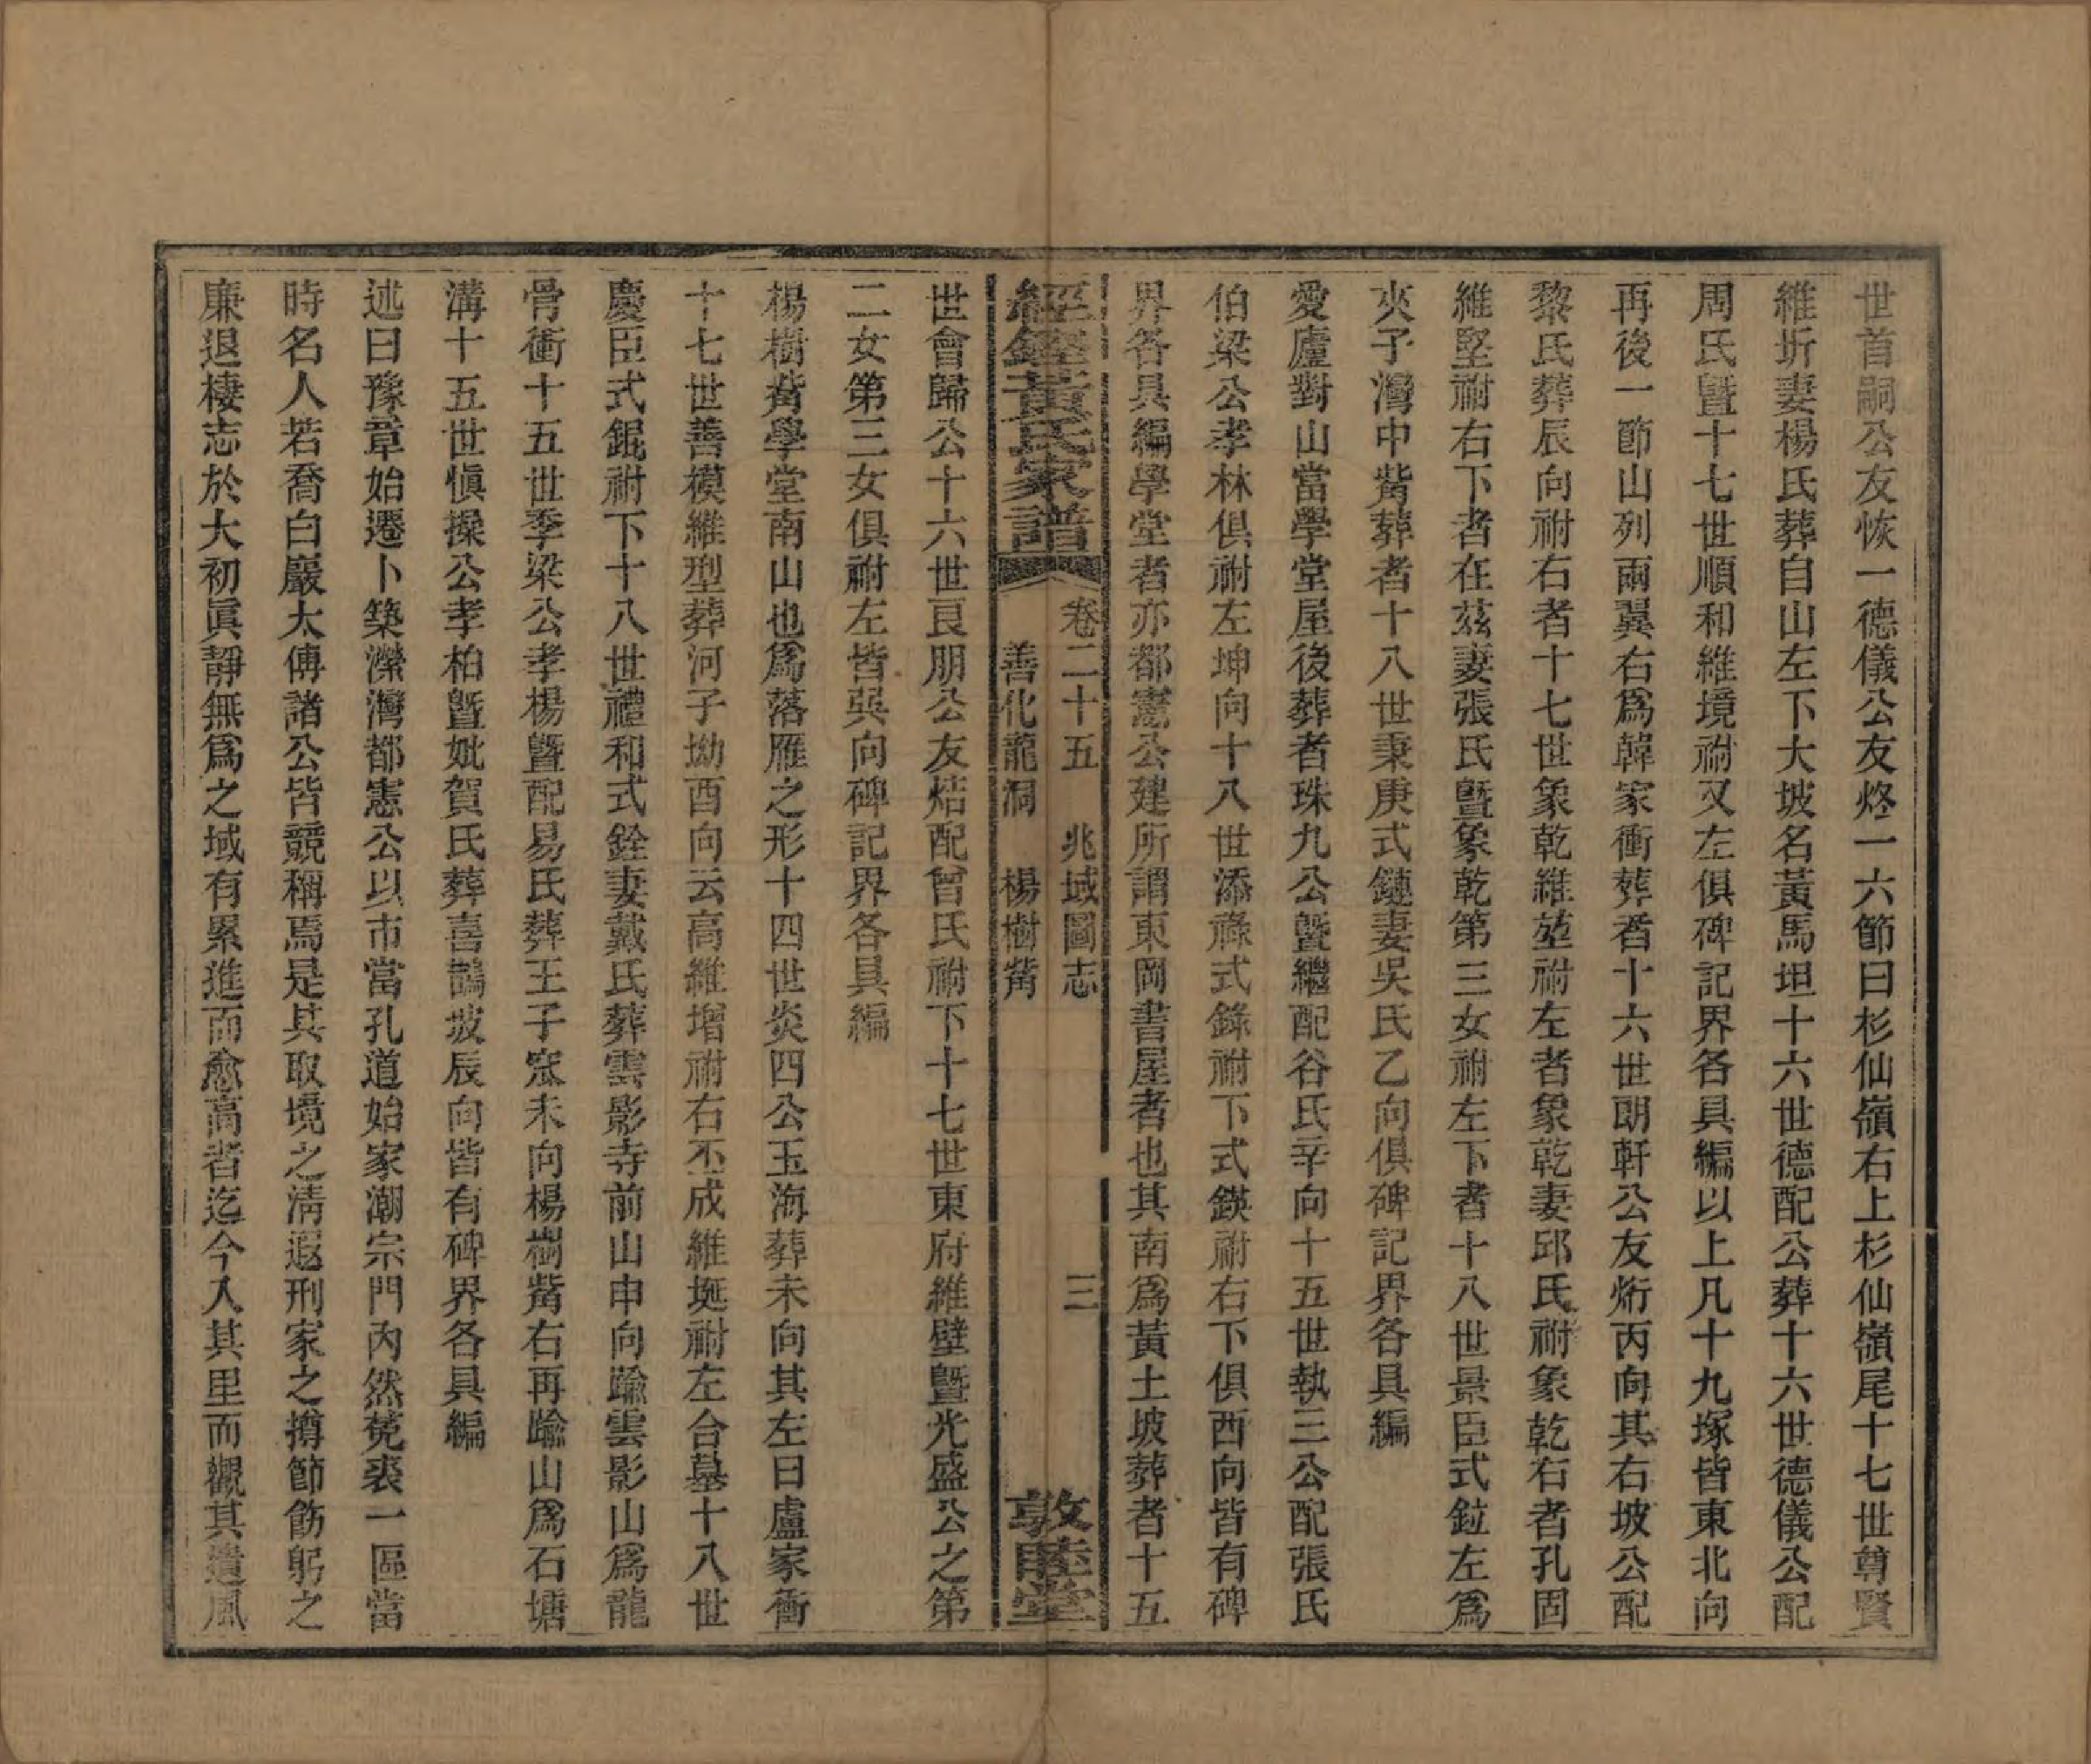 世首嗣公友恢一德儀公友烙一六節曰杉仙嶺右上杉仙嶺尾十七世尊賢
維圻妻楊氏葬自山左下大坡名黃馬坦十六世德配公葬十六世德儀公配
周氏曁十七世順和維境祔又左俱碑記界各具編以上凡十九塚皆東北向
再後一節山列兩翼右爲韓家衝葬者十六世朗軒公友烆丙向其右坡公配
黎氏葬辰向祔右者十七世象乾維堃祔左者象乾妻邱氏祔象乾右者孔固
維堅祔右下者在茲妻張氏曁象乾第三女祔左下者十八世景臣式鉝左爲
夾子灣中觜葬者十八世秉庚式鏈妻吳氏乙向俱碑記界各具編
愛廬對山當學堂屋後葬者珠九公曁繼配谷氏辛向十五世執三公配張氏
伯梁公孝林俱祔左坤向十八世添祿式錄祔下式鍈祔右下俱西向皆有碑
界各具編學堂者亦都憲公建所謂東岡書屋者也其南爲黃土坡葬者十五
經鏗黃氏家譜 卷二十五 兆域圖志 三
善化龍洞 楊樹觜 敦睦堂
世會歸公十六世艮朋公友焅配曾氏祔下十七世東府維壁曁光盛公之第
二女第三女俱祔左皆巽向碑記界各具編
楊樹觜學堂南山也爲落雁之形十四世炎四公玉海葬未向其左曰盧家衝
十七世善模維型葬河子坳酉向云高維增祔右丕成維埏祔左合墓十八世
慶臣式錕祔下十八世禮和式銓妻戴氏葬雲影寺前山申向踰雲影山爲龍
骨衝十五世季梁公孝楊曁配易氏葬王子窊未向楊樹觜右再踰山爲石塘
溝十五世愼操公孝柏曁妣賀氏葬喜鵲坡辰向皆有碑界各具編
述曰豫章始遷卜築濚灣都憲公以市當孔道始家潮宗門內然菟裘一區當
時名人若喬白巖太傅諸公皆競稱焉是其取境之淸遐刑家之撙節飭躬之
廉退棲志於大初眞靜無爲之域有累進而愈高者迄今入其里而觀其遺風